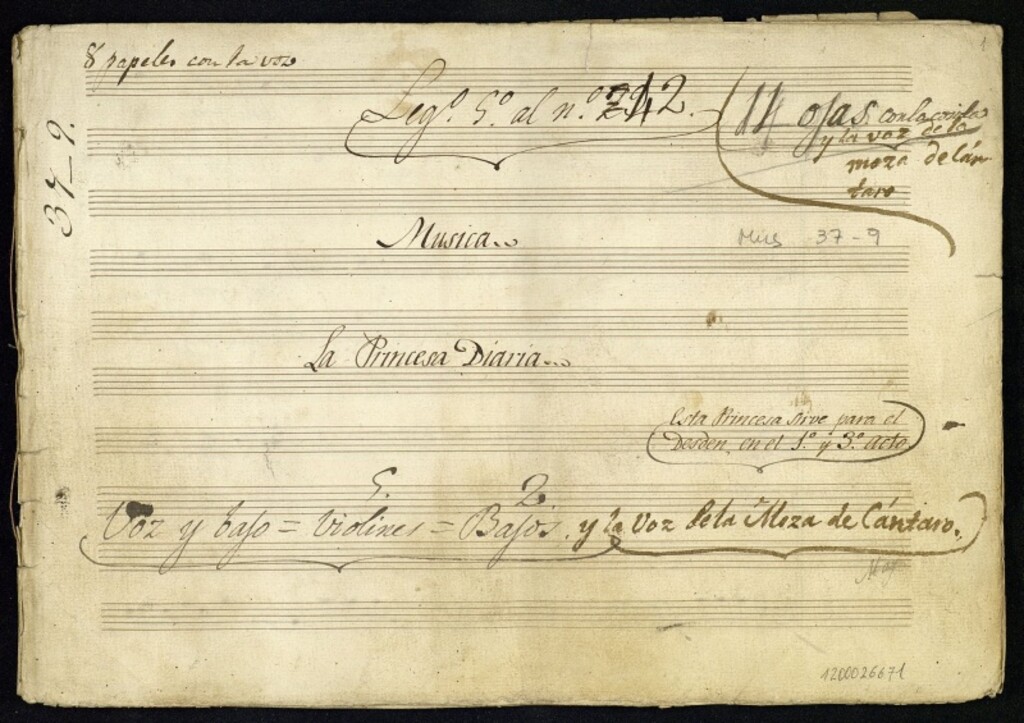 8 papeles con la voz
1
Legº. 5º. al n.º 242.
14 ojas con la
y la voz de la
moza de Cán-
taro
37-9.
Musica..
Mus 37-9
La Princesa Diaria...
Esta Princesa sirve para el
Desden, en el 1.º y 3.º acto.
5. 2.
Voz y bajo = Violines = Bajos. y la Voz de la Moza de Cántaro.
1200026671